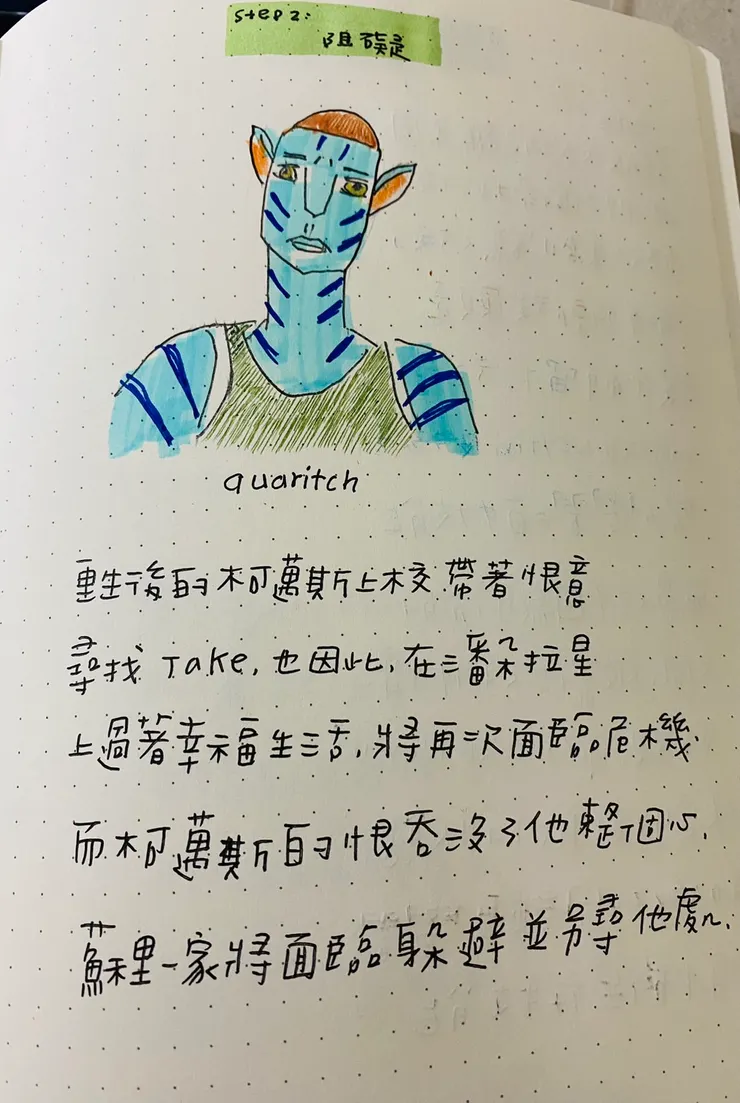 step 2:
阻礙
quaritch
重生後的柯邁斯上校帶著恨意
尋找 Take, 也因此, 在潘朵拉星
上過著幸福生活, 將再次面臨危機.
而柯邁斯的恨吞沒了他整個心,
蘇里一家將面臨躲避並另尋他處.